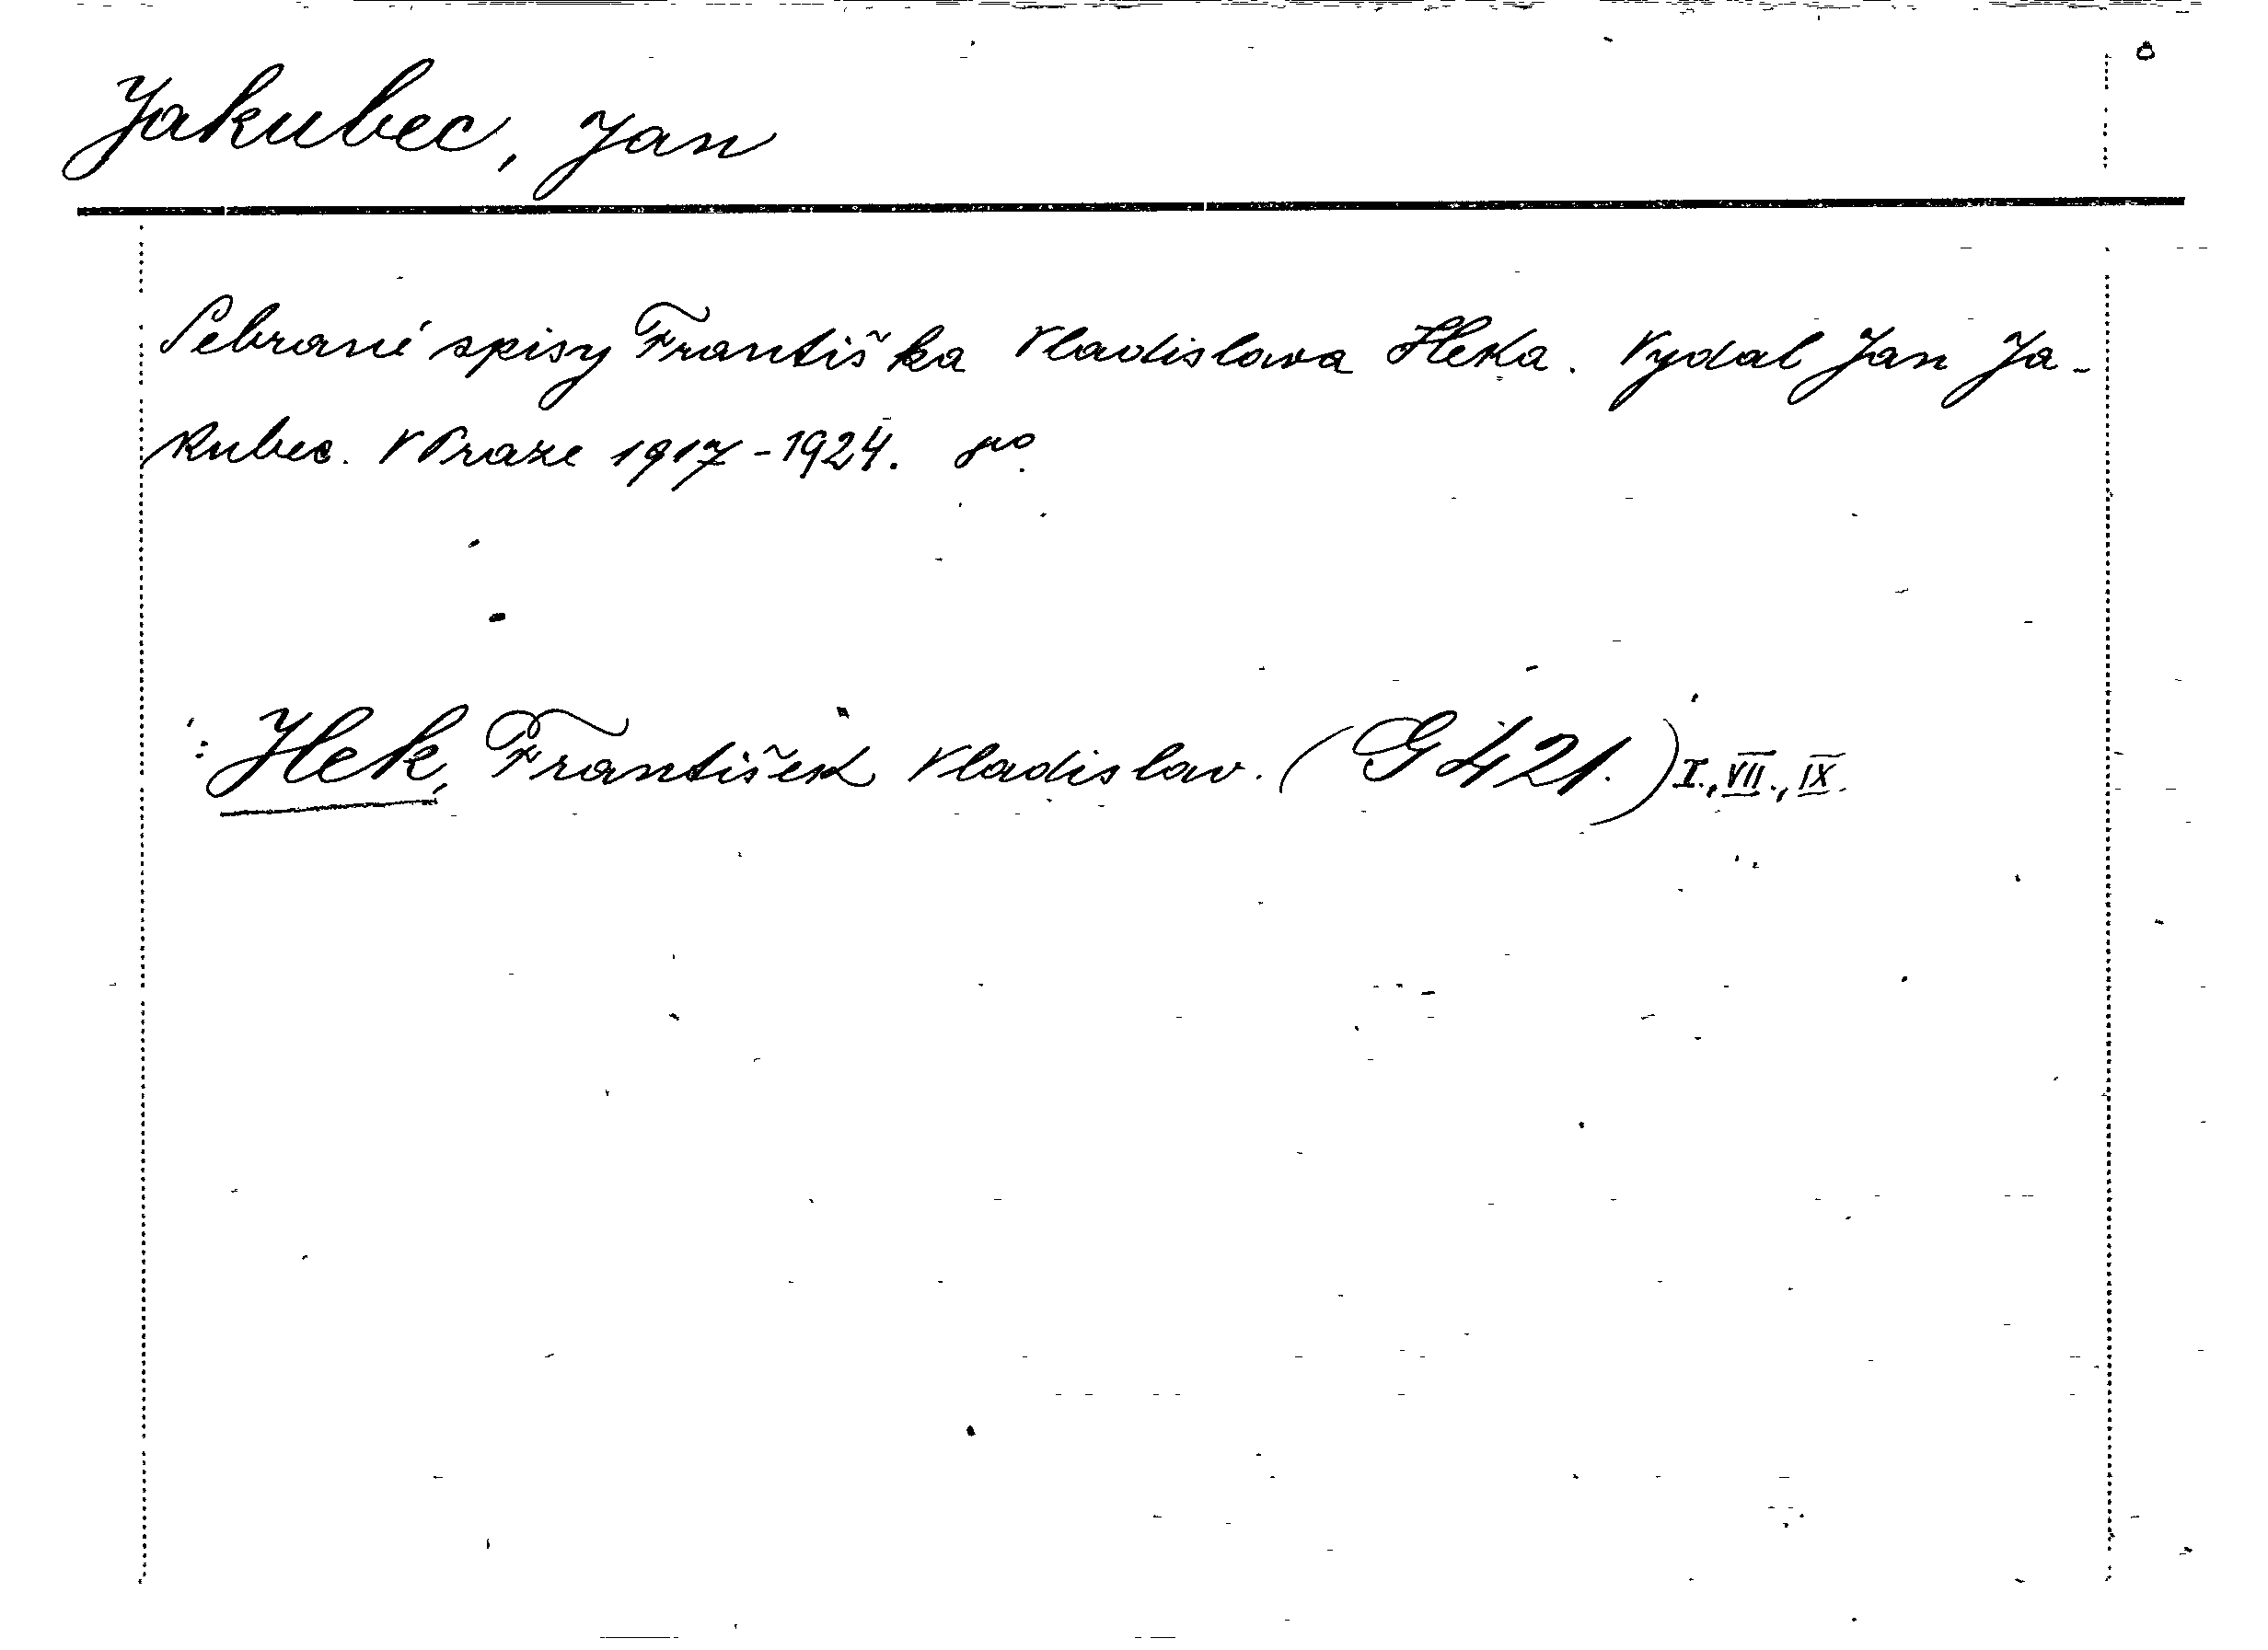 Jakubec, Jan
Sebrané spisy Františka Vladislava Heka. Vydal Jan Ja-
kubec. V Praze 1917-1924. 8vo.
: Hek, František Vladislav. (G 421.) I., VII., IX.